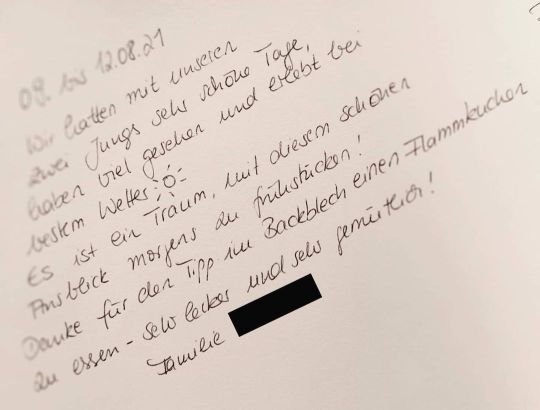 09. bis 12.08.21
Wir hatten mit unseren
zwei Jungs sehr schöne Tage,
haben viel gesehen und erlebt bei
bestem Wetter
Es ist ein Traum, mit diesem schönen
Ausblick morgens zu frühstücken!
Danke für den Tipp im Backblech einen Flammkuchen
zu essen - sehr lecker und sehr gemütlich!
Familie